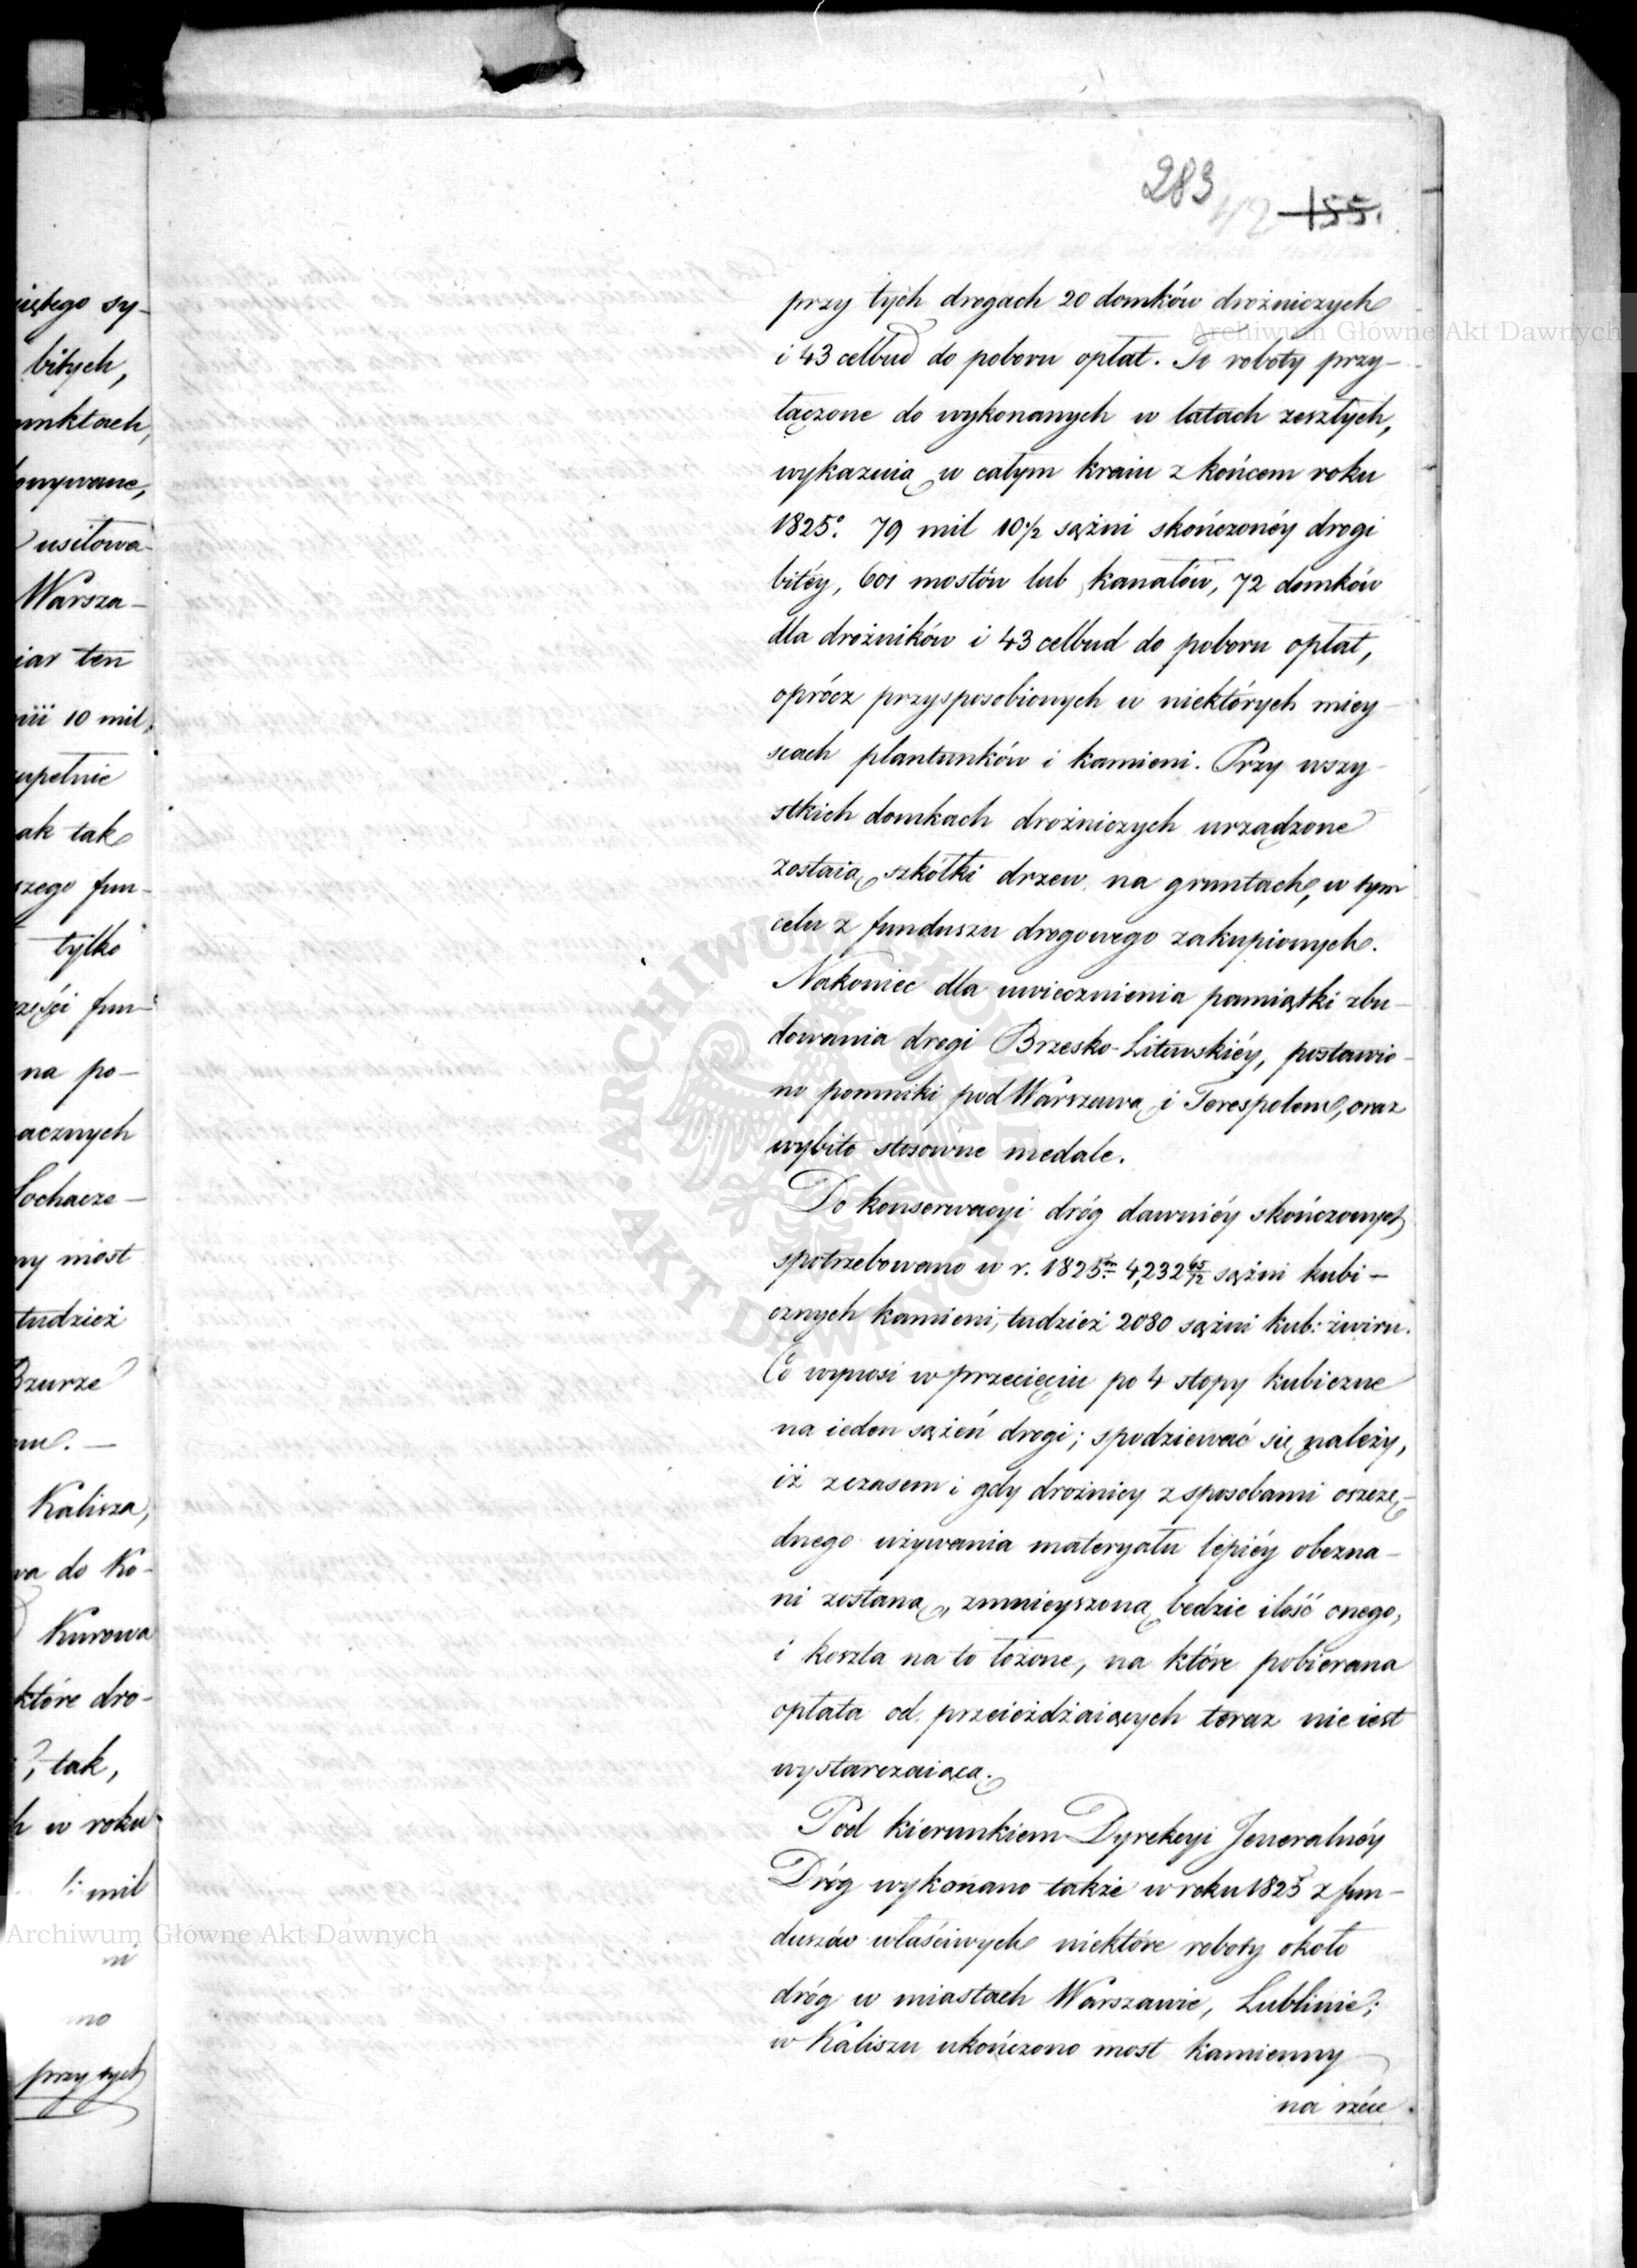 283
112 155.
iętego sy-
bitych,
unktach,
onywane,
usiłowa-
Warsza-
iar ten
nii 10 mil,
upełnie
ak tak
szego fun-
tylko
części fun-
na po-
acznych
Sochacze-
ny most
tudzież
Bzurze
Kalisza,
wa do Ko-
Kurowa
które dro-
tak,
h w roku
mil
ni
no
przy tych
przy tych drogach 20 domków drożniczych
i 43 celbud do poboru opłat. Te roboty przy-
łączone do wykonanych w latach zeszłych,
wykazuią w całym kraiu z końcem roku
1825º. 79 mil 10½ sążni skończonéy drogi
bitéy, 601 mostów lub kanałów, 72 domków
dla drożników i 43 celbud do poboru opłat,
oprócz przysposobionych w niektórych miey-
scach plantunków i kamieni. Przy wszy-
stkich domkach drożniczych urządzone
zostaią szkółki drzew na gruntach, w tym
celu z funduszu drogowego zakupionych.
Nakoniec dla uwiecznienia pamiątki zbu-
dowania drogi Brzesko-Litewskiéy, postawio-
no pomniki pod Warszawą i Terespolem, oraz
wybito stosowne medale.
Do konserwacyi dróg dawniéy skończonych
spotrzebowano w r. 1825m 4,232 65/72 sążni kubi-
cznych kamieni, tudzież 2080 sążni kub: żwiru.
Co wynosi w przecięciu po 4 stopy kubiczne
na ieden sążeń drogi; spodziewać się należy,
iż z czasem i gdy drożnicy z sposobami oszczę-
dnego używania materyału lepiéy obezna-
ni zostaną, zmnieyszoną będzie ilość onego,
i koszta na to łożone, na które pobierana
opłata od przeieżdżaiących teraz nie iest
wystarczaiącą.
Pod kierunkiem Dyrekcyi Jeneralnéy
Dróg wykonano także w roku 1825 z fun-
duszów właściwych niektóre roboty około
dróg w miastach Warszawie, Lublinie;
w Kaliszu ukończono most kamienny
na rzéce
Archiwum Główne Akt Dawnych
Archiwum Główne Akt Dawnych
ARCHIWUM GŁÓWNE · AKT DAWNYCH ·